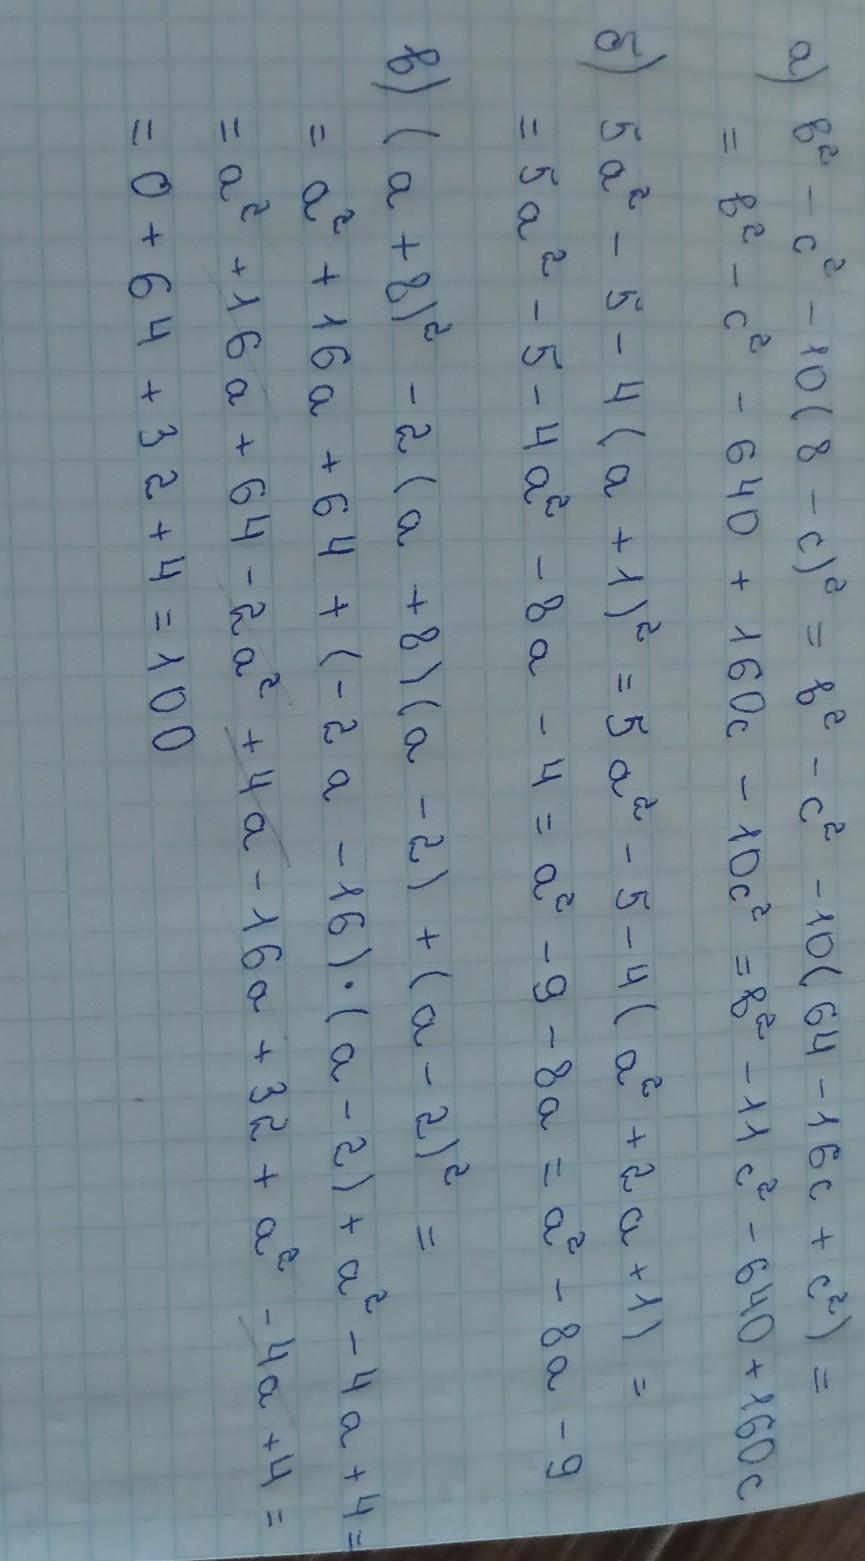 а) b² - c² - 10(8 - c)² = b² - c² - 10(64 - 16c + c²) =
= b² - c² - 640 + 160c - 10c² = b² - 11c² - 640 + 160c
б) 5a² - 5 - 4(a + 1)² = 5a² - 5 - 4(a² + 2a + 1) =
= 5a² - 5 - 4a² - 8a - 4 = a² - 9 - 8a = a² - 8a - 9
в) (a + 8)² - 2(a + 8)(a - 2) + (a - 2)² =
= a² + 16a + 64 + (-2a - 16)·(a - 2) + a² - 4a + 4 =
= a² + 16a + 64 - 2a² + 4a - 16a + 32 + a² - 4a + 4 =
= 0 + 64 + 32 + 4 = 100